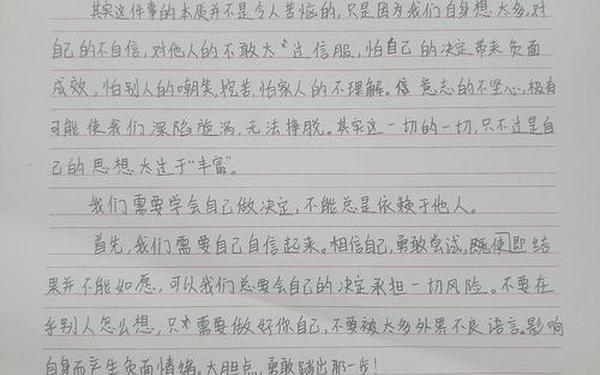 其实这件事的本质并不是令人苦恼的,只是因为我们自身想太多。对
自己的不自信,对他人的不敢太过信服,怕自己的决定带来负面
成效,怕别人的嘲笑,挖苦,怕家人的不理解。意志的不坚心,极有
可能使我们深陷旋涡,无法挣脱。其实这一切的一切,只不过是自
己的思想太过于“丰富”。
我们需要学会自己做决定,不能总是依赖于他人。
首先,我们需要自己自信起来。相信自己,勇敢尝试,即结
果并不能如愿,可以我们总要会自己的决定承担一切风险。不要在
乎别人怎么想,只需要做好你自己,不要被太多外界不良语言影响
自身而产生负面情绪。大胆点,勇敢踏出那一步!